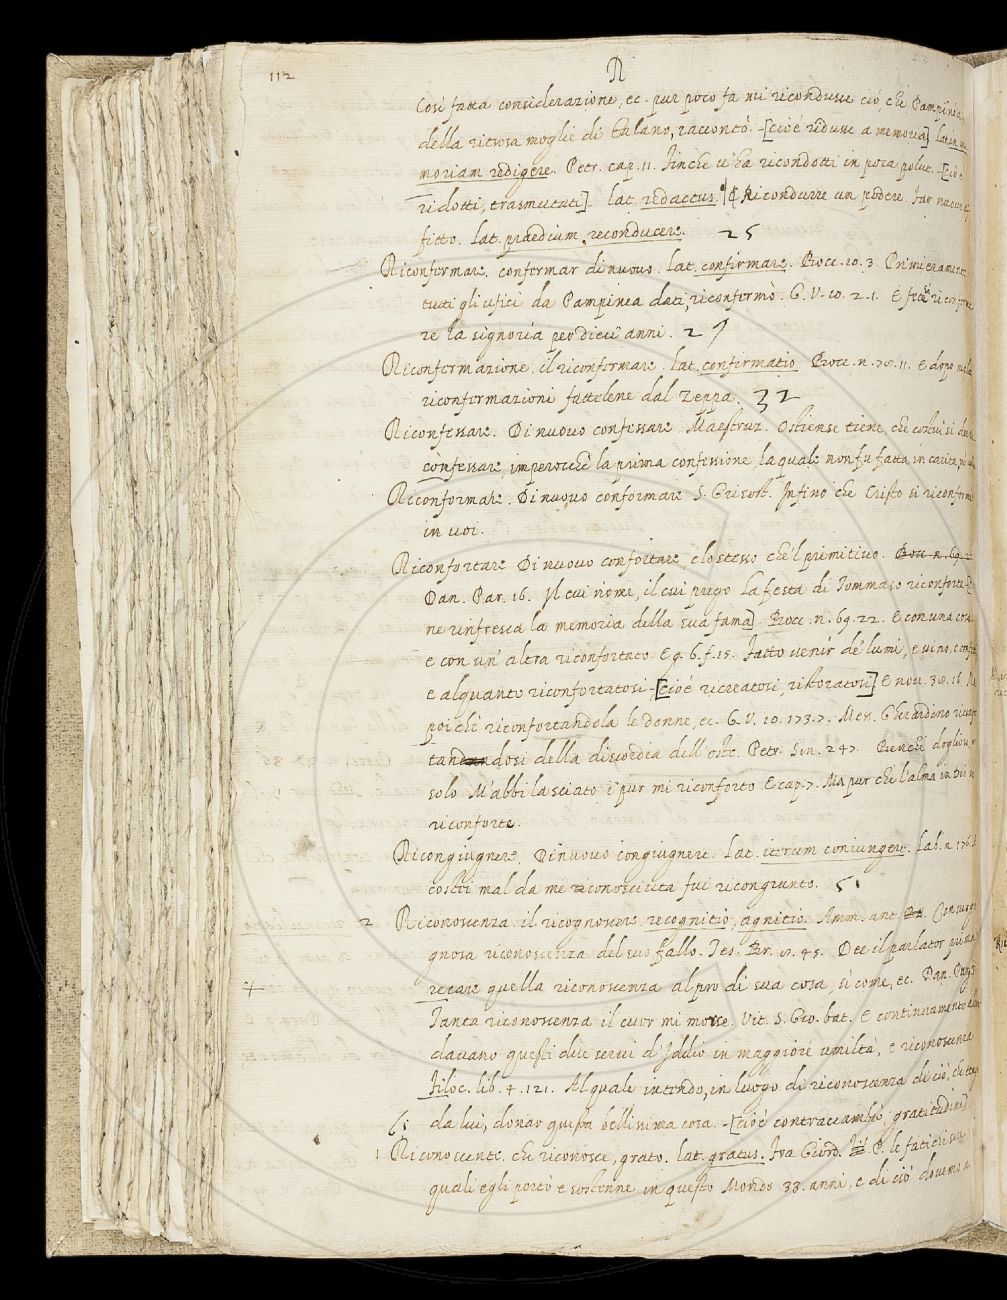 112
R
Cosi fatta considerazione, ec. pur poco fa mi ricondusse ciò che Pampinea,
della ritrosa moglie di Talano, raccontò. -[cioè ridusse a memoria] lat. in me
moriam redigere. Petr. cap. 11. Finche u' ha ricondotti in poca polve. -[cioè
ridotti, trasmutati]- lat. redactus. ¶ Ricondurre un podere. Far nuovo af
fitto. lat. praedium reconducere. 25
Riconfermare. confermar di nuovo. lat. confirmare. Bocc. 10. 3. Primieramente
tutti gli ufici da Pampinea dati, riconfermò. G. V. 10. 2. 1. E fecer riconferma
re la signoria per dieci anni. 29
Riconfermazione. il riconfermare. lat. confirmatio. Bocc. n. 78. 11. E dopo molte
riconfermazioni fattelene dal Zeppa. 32
Riconfessare. Di nuovo confessare. Maestruz. Ostiense tiene, che costui si dee ri
confessare, imperocchè la prima confessione, la quale non fu fatta in carita,
Riconformare. Di nuovo conformare. S. Grisost. Infino che Cristo si riconforme
in voi.
Riconfortare. Di nuovo confortare, lo stesso che 'l primitivo. Bocc. n. 69. 2
Dan. Par. 16. Il cui nome, il cui pregio La festa di Tommaso riconforta [
ne rinfresca la memoria della sua fama]. Bocc. n. 69. 22. E con una cosa,
e con un' altra riconfortato. E g. 6. f. 15. Fatto venir de' lumi, e vino, e confetti
e alquanto riconfortatosi -[cioè ricreatosi, ristoratosi] E nov. 38. 16. Ma
poichè riconfortandola le donne, ec. G. V. 10. 173. 7. Mess. Gherardino riconfor
tandosi della discordia dell' oste. Petr. Son. 247. Benchè doglioso, e
solo M' abbi lasciato i' pur mi riconforto E cap. 7. Ma pur che l' alma in Dio si
riconforte.
Ricongiugnere. Di nuovo congiugnere. Lat. iterum coniungere. Lab. n. 176.
costei mal da me riconosciuta fui ricongiunto. 51
2 Riconoscenza. il ricognoscere recognitio, agnitio. Amm. ant. Con vergo
gnosa riconoscenza del suo fallo. Tes. Br. 8. 45. Dee il parlator prima
recare quella riconoscenza al pro di sua cosa, sì come, ec. Dan. Purg.
Tanta riconoscenza il cuor mi morse. Vit. S. Gio. bat. E continuamente
davano questi due servi d' Iddio in maggiore umiltà, e riconoscenza
Filoc. lib. 4. 121. Al quale intendo, in luogo di riconoscenza di ciò, che
61 da lui, donar questa bellissima cosa. -[cioè contraccambio, gratitudine]
1 Riconoscente. che riconosce, grato. lat. gratus. Fra Giord. P. le fatiche
quali egli portò e sostenne in questo Mondo 33. anni, e di ciò dovemo